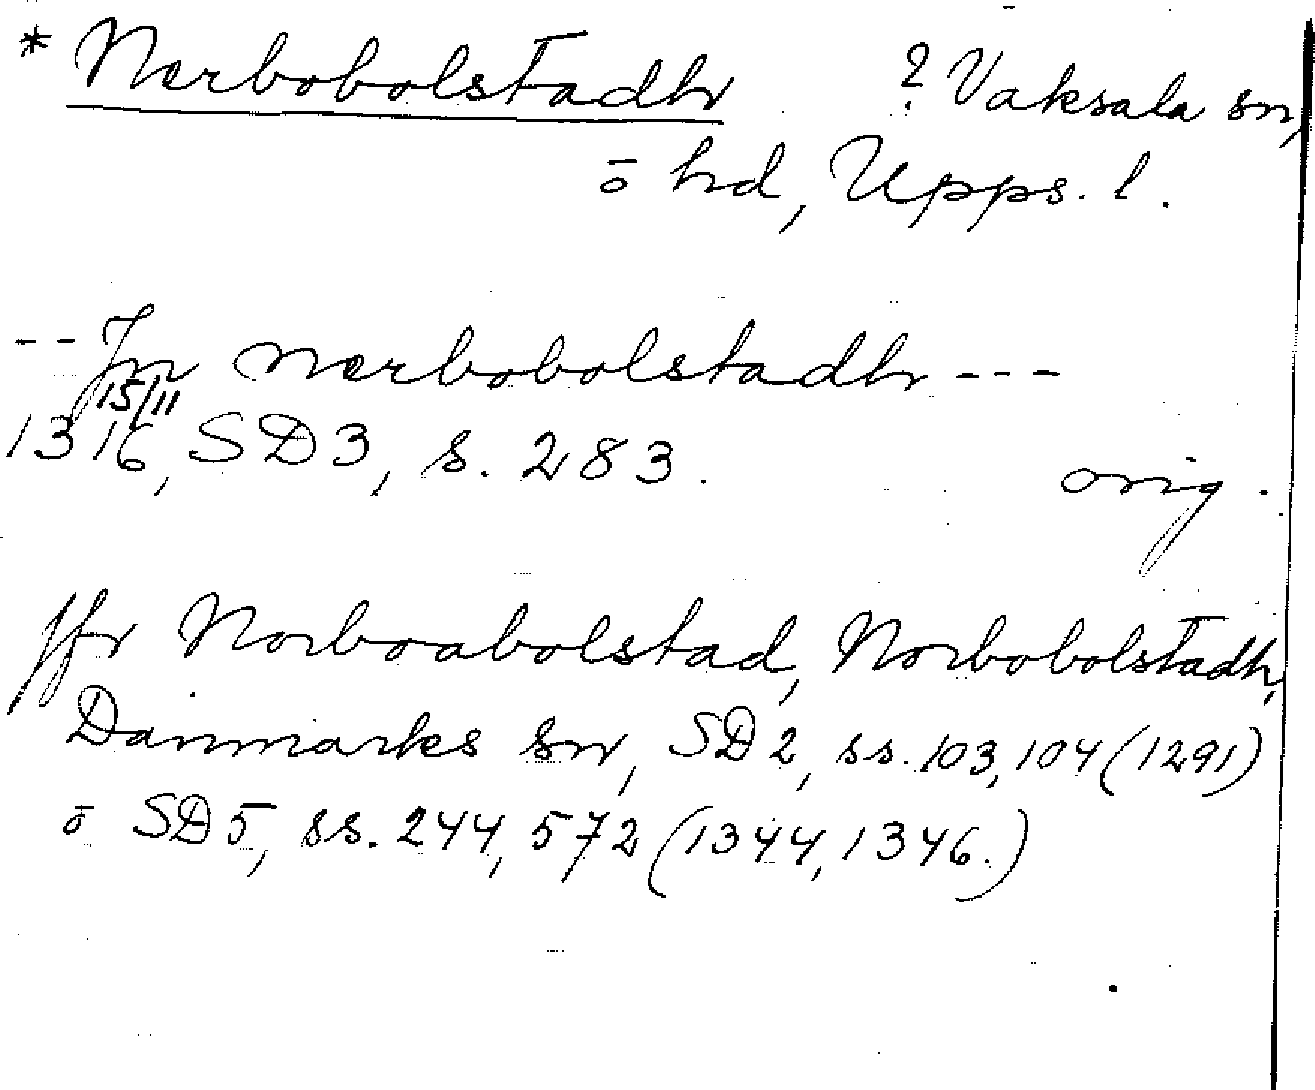 * Nærbobolstadhr ? Vaksala sn,
ō hd, Upps. l.
-- Jn nærbobolstadhr ---
1316 15/11, SD3, s. 283. orig.
Jfr Norboabolstad, Norbobolstadh,
Danmarks sn, SD2, ss. 103, 104 (1291)
ō SD5, ss. 244, 572 (1344, 1346.)